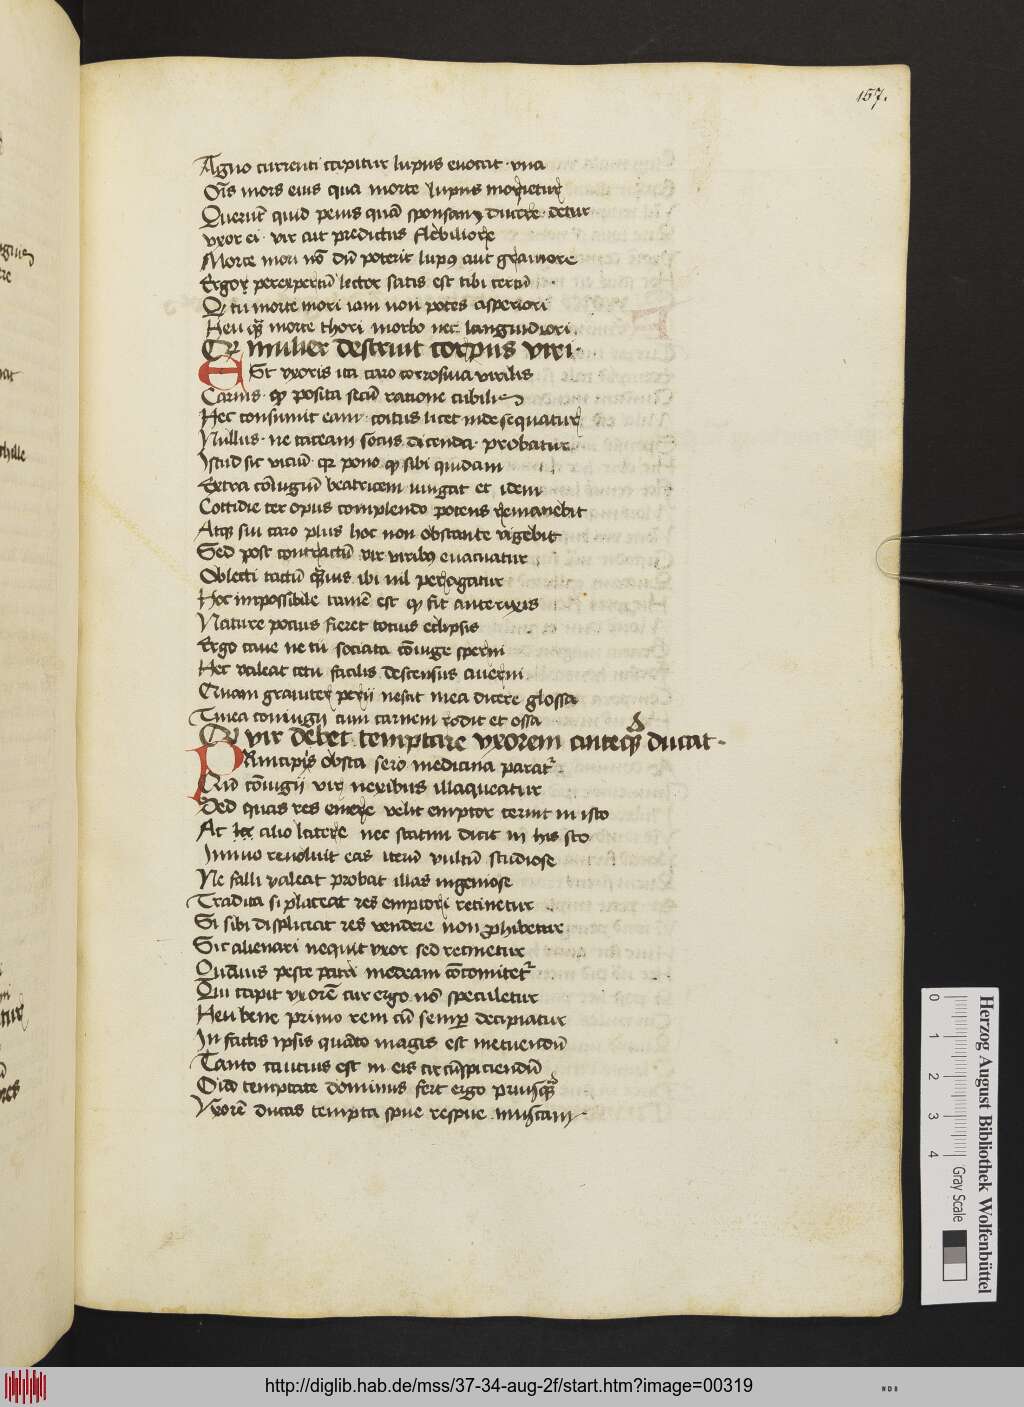 157.
Agno currenti capitur lupus euocat vna
Oīs mors eius qua morte lupus morietur
Querūt quid peius quā sponsam ducere detur
vxor ei vir cut predictus flebiliore
Morte mori nō dū poterit lupus aut grauiore
Ergo lector satis est tibi certū
Q tu morte mori iam non potes asperiori
Heu morte thori morbo nec languidiori
mulier destruit corpus viri
Est vxoris ita caro corrosiua virilis
Carnis posita secū ratione cubilis
Hec consumit eam coitus licet inde sequatur
Nullus ne taceam socius dicenda probatur
Istud sic viciū pono sibi quidam
Extra cōiugiū beatricem iungat et idem
Cottidie ter opus complendo potens remanebit
Atq sui caro plus hoc non obstante vigebit
Sed post contractū vir viribus euacuatur
Oblecti tactū ibi nil peragatur
Hoc impossibile tamē est fit
Nature potius fieret totius eclipsis
Ergo caue ne tu sociata cōiuge sperni
Hec valeat facilis descensus auerni
Quam grauiter perii nescit mea dicere glossa
Tinea coniugii cum carnem rodit et ossa
vir debet temptare vxorem anteq ducat
Principiis obsta sero medicina paratur
Cū cōiugii vir nexibus illaqueatur
Sed quas res emere velit emptor cernit in isto
At alio latere nec statim dicit in his sto
Immo reuoluit eas iterū vultū studiose
Ne falli valeat probat illas ingeniose
Tradita si placeat res emptori retinetur
Si sibi displiceat res vendere non prohibetur
Sic alienari nequit vxor sed retinetur
Quāuis peste medeam cōcomitetur
Qui capit vxorē cur ergo nō speculetur
Heu bene primo rem cū semper decipiatur
In factis ipsis quāto magis est metuendū
Tanto cautius est in eis circūspiciendū
Qid temptate dominus fert ergo priusq
Vxorē ducas tempta spue respue muscam
http://diglib.hab.de/mss/37-34-aug-2f/start.htm?image=00319
Herzog August Bibliothek Wolfenbüttel
0 1 2 3 4
Gray Scale